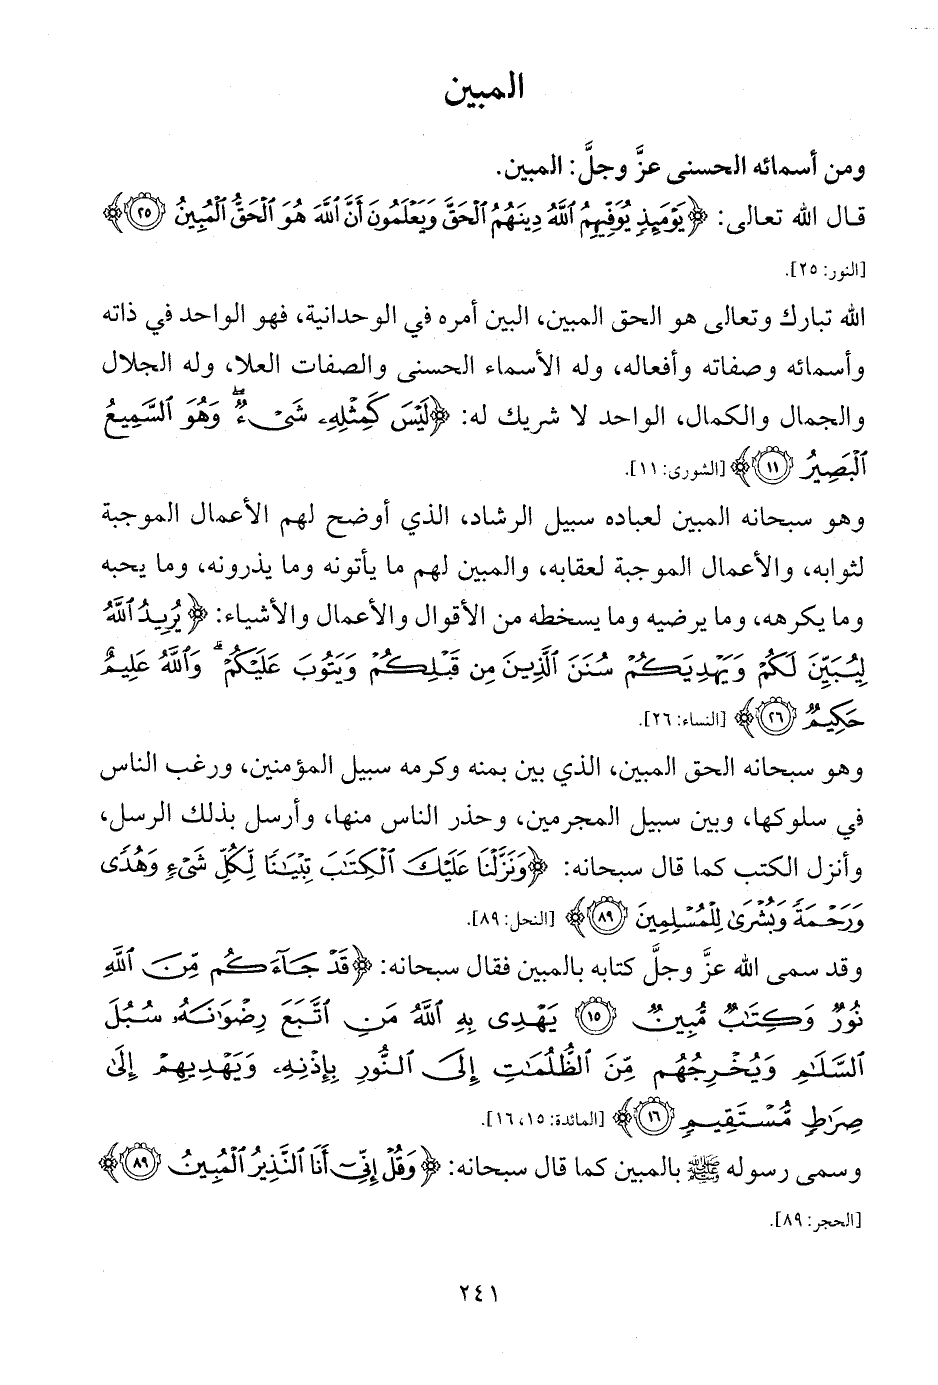 المبين
ومن أسمائه الحسنى عزَّ وجلَّ: المبين.
قال الله تعالى: ﴿يَوْمَئِذٍ يُوَفِّيهِمُ ٱللَّهُ دِينَهُمُ ٱلْحَقَّ وَيَعْلَمُونَ أَنَّ ٱللَّهَ هُوَ ٱلْحَقُّ ٱلْمُبِينُ ٢٥﴾
[النور: ٢٥].
الله تبارك وتعالى هو الحق المبين، البين أمره في الوحدانية، فهو الواحد في ذاته
وأسمائه وصفاته وأفعاله، وله الأسماء الحسنى والصفات العلا، وله الجلال
والجمال والكمال، الواحد لا شريك له: ﴿لَيْسَ كَمِثْلِهِۦ شَىْءٌ ۖ وَهُوَ ٱلسَّمِيعُ
ٱلْبَصِيرُ ١١﴾ [الشورى: ١١].
وهو سبحانه المبين لعباده سبيل الرشاد، الذي أوضح لهم الأعمال الموجبة
لثوابه، والأعمال الموجبة لعقابه، والمبين لهم ما يأتونه وما يذرونه، وما يحبه
وما يكرهه، وما يرضيه وما يسخطه من الأقوال والأعمال والأشياء: ﴿يُرِيدُ ٱللَّهُ
لِيُبَيِّنَ لَكُمْ وَيَهْدِيَكُمْ سُنَنَ ٱلَّذِينَ مِن قَبْلِكُمْ وَيَتُوبَ عَلَيْكُمْ ۗ وَٱللَّهُ عَلِيمٌ
حَكِيمٌ ٢٦﴾ [النساء: ٢٦].
وهو سبحانه الحق المبين، الذي بين بمنه وكرمه سبيل المؤمنين، ورغب الناس
في سلوكها، وبين سبيل المجرمين، وحذر الناس منها، وأرسل بذلك الرسل،
وأنزل الكتب كما قال سبحانه: ﴿وَنَزَّلْنَا عَلَيْكَ ٱلْكِتَٰبَ تِبْيَٰنًا لِّكُلِّ شَىْءٍ وَهُدًى
وَرَحْمَةً وَبُشْرَىٰ لِلْمُسْلِمِينَ ٨٩﴾ [النحل: ٨٩].
وقد سمى الله عزَّ وجلَّ كتابه بالمبين فقال سبحانه: ﴿قَدْ جَآءَكُم مِّنَ ٱللَّهِ
نُورٌ وَكِتَٰبٌ مُّبِينٌ ١٥ يَهْدِى بِهِ ٱللَّهُ مَنِ ٱتَّبَعَ رِضْوَٰنَهُۥ سُبُلَ
ٱلسَّلَٰمِ وَيُخْرِجُهُم مِّنَ ٱلظُّلُمَٰتِ إِلَى ٱلنُّورِ بِإِذْنِهِۦ وَيَهْدِيهِمْ إِلَىٰ
صِرَٰطٍ مُّسْتَقِيمٍ ١٦﴾ [المائدة: ١٥، ١٦].
وسمى رسوله ﷺ بالمبين كما قال سبحانه: ﴿وَقُلْ إِنِّىٓ أَنَا ٱلنَّذِيرُ ٱلْمُبِينُ ٨٩﴾
[الحجر: ٨٩].
٢٤١